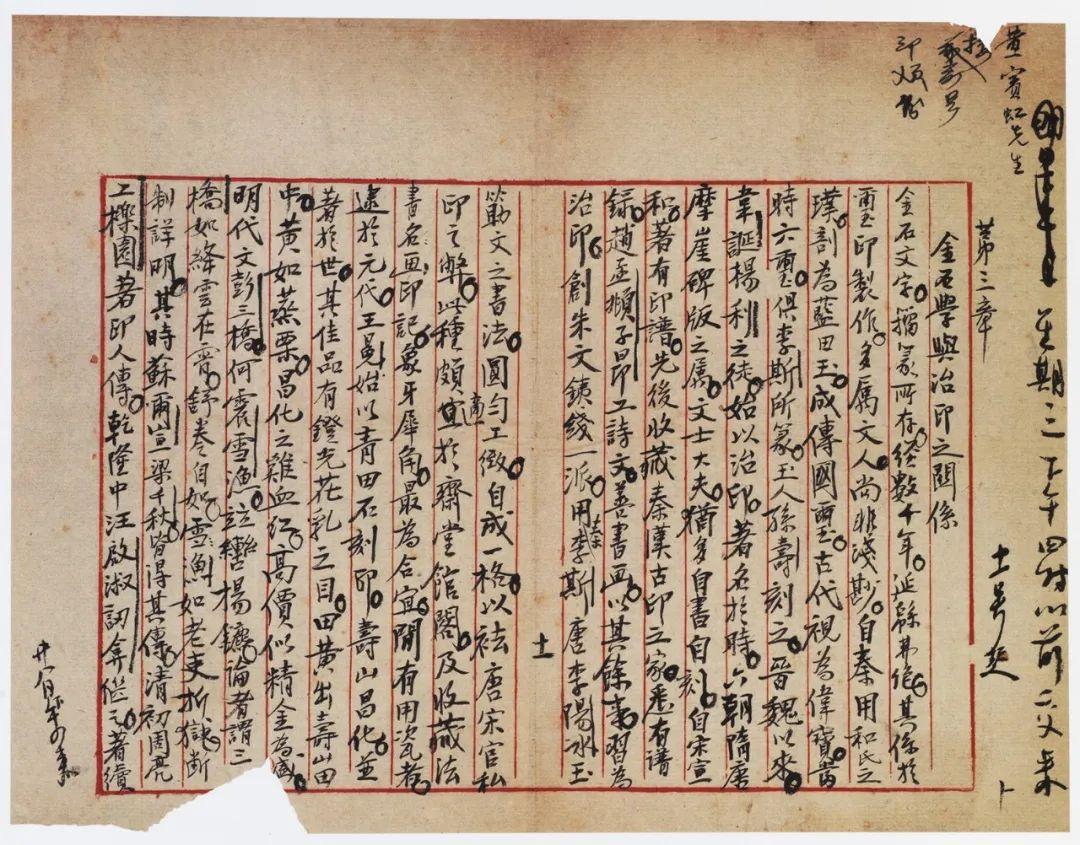 黃賓虹先生
印好
星期三下午四時以前二父来
十号起
第三章
金石學與治印之關係
金石文字籀篆所存經數千年延緜弗絕其係於
璽印製作多屬文人尚非淺尠自秦用和氏之
璞剖為藍田玉成傳國璽古代視為偉寶當
時六璽俱李斯所篆玉人孫壽刻之晉魏以來
韋誕揚利之徒始以治印著名於時六朝隋唐
摩崖碑版之屬文士大夫猶多自書自刻自宋宣
和著有印譜先後收藏秦漢古印之家悉有譜
錄趙孟頫子昂工詩文善書画以其餘事習為
治印創朱文鐵線一派用秦李斯唐李陽冰玉
十一
筯文之書法圓勻工緻自成一格以袪唐宋官私
印之弊此種頗適宜於齋堂館閣及收藏法
書名画印記象牙犀角最為合宜間有用瓷者
逮於元代王冕始以青田石刻印壽山昌化並
著於世其佳品有鐙光花乳之目田黃出壽山田
中黃如蒸栗昌化之雞血紅高價似精金為盛
明代文彭三橋何震雪漁並轡揚鑣論者謂三
橋如絳雲在霄舒卷自如雪漁如老吏折獄斷
制詳明其時蘇爾宣梁千秋皆得其傳清初周亮
工櫟園著印人傳乾隆中汪啟淑訒葊繼之著續